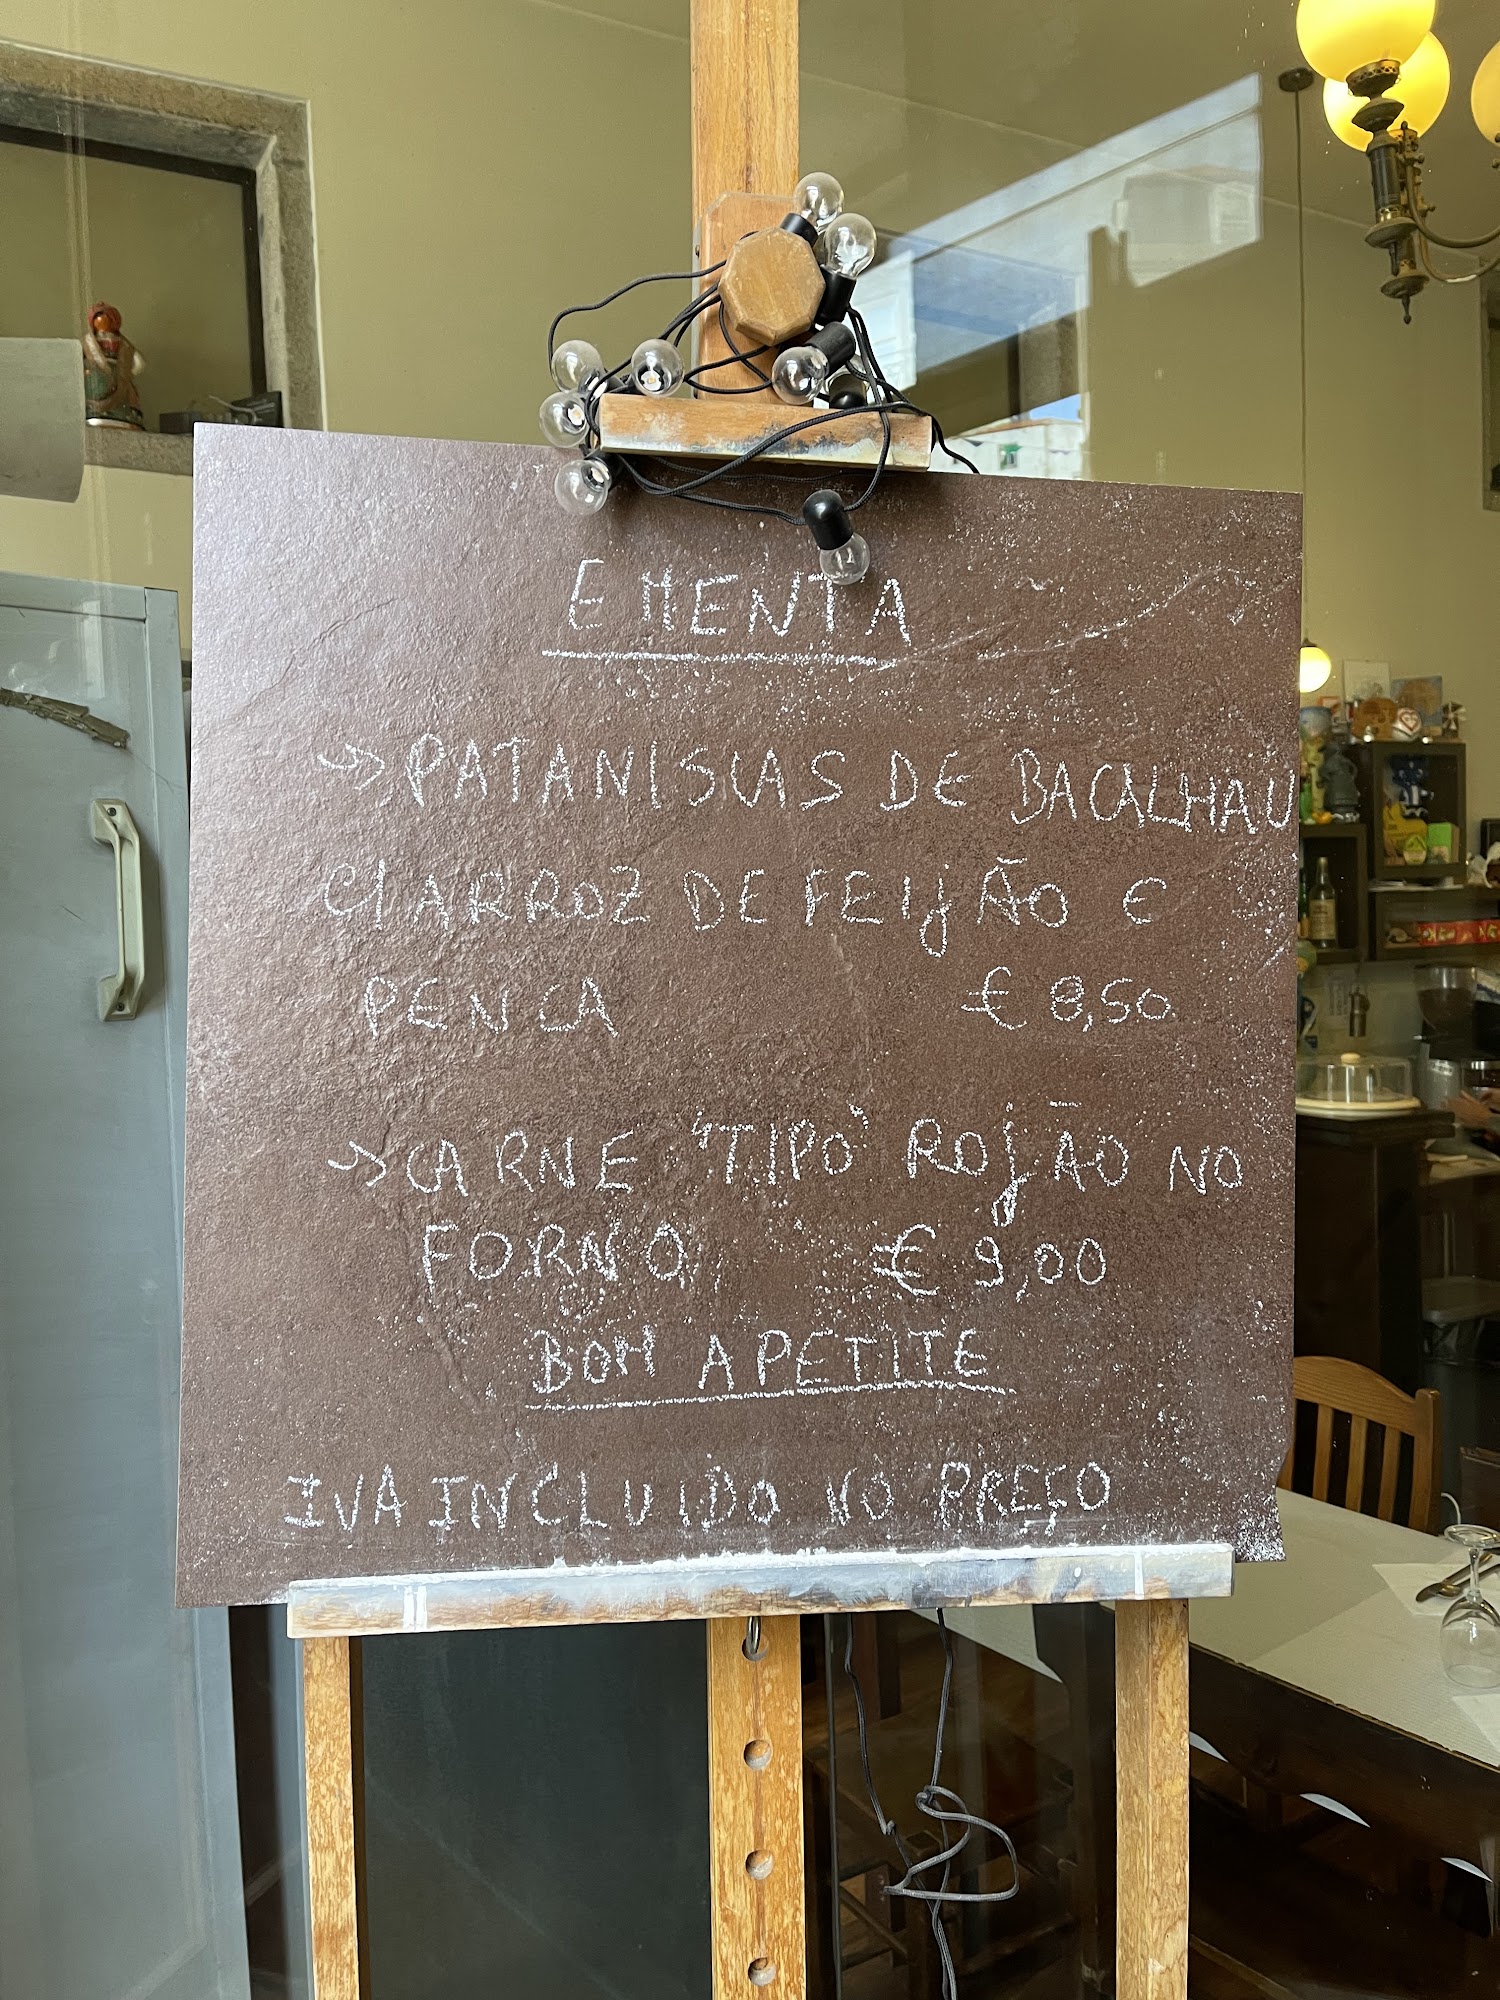 EMENTA
→ PATANISCAS DE BACALHAU
C/ ARROZ DE FEIJÃO E
PENCA € 8,50
→ CARNE "TIPO" ROJÃO NO
FORNO € 9,00
BOM APETITE
IVA INCLUIDO NO PREÇO